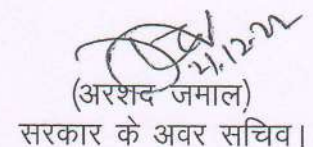 21.12.22
(अरशद जमाल)
सरकार के अवर सचिव।